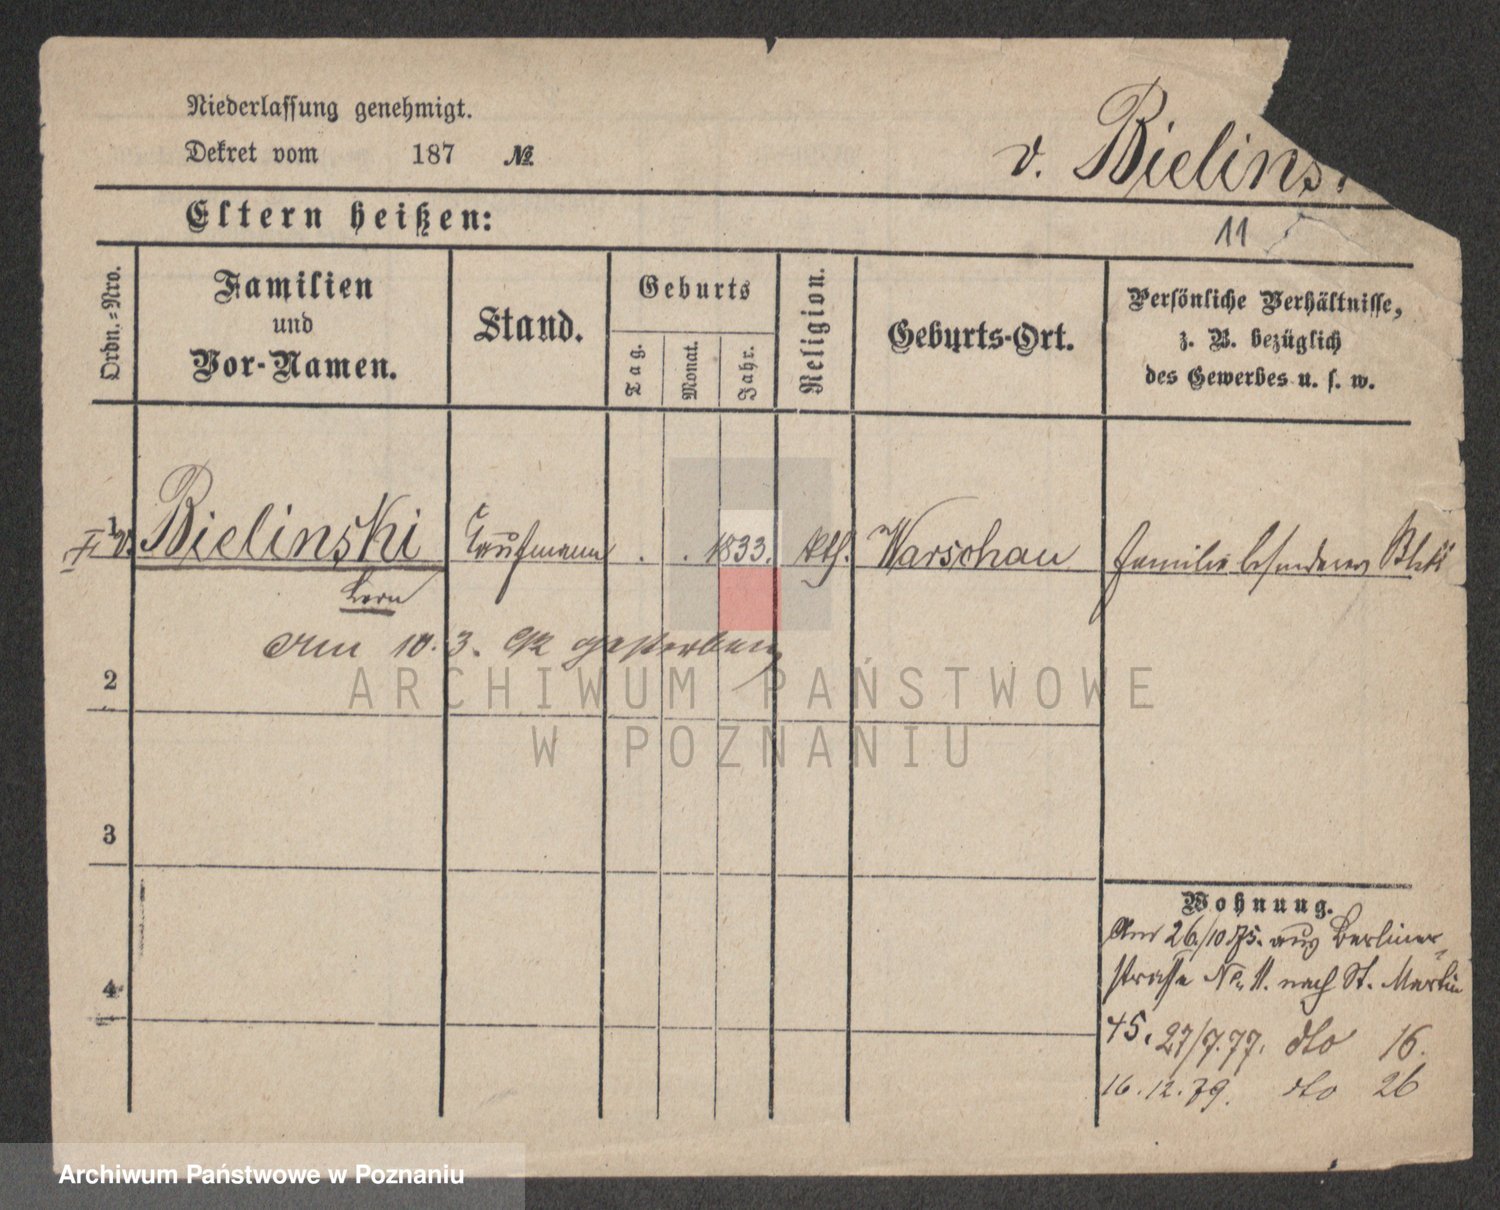 Niederlassung genehmigt.
Dekret vom 187 №
v. Bielins
Eltern heißen:
11
Ordn.=Nro.
Familien
und
Vor-Namen.
Stand.
Geburts
Tag.
Monat.
Jahr.
Religion.
Geburts-Ort.
Persönliche Verhältnisse,
z. B. bezüglich
des Gewerbes u. s. w.
1 v. Bielinski Kaufmann . . 1833. kth. Warschau Familie besonderes Blatt
Am 10. 3. 92 gestorben
2
ARCHIWUM PAŃSTWOWE
W POZNANIU
3
4
Wohnung.
Am 26/10 75. aus Berliner-
strasse No 11. nach St. Martin
45. 27/7.77. dto 16.
16.12.79. dto 26
Archiwum Państwowe w Poznaniu